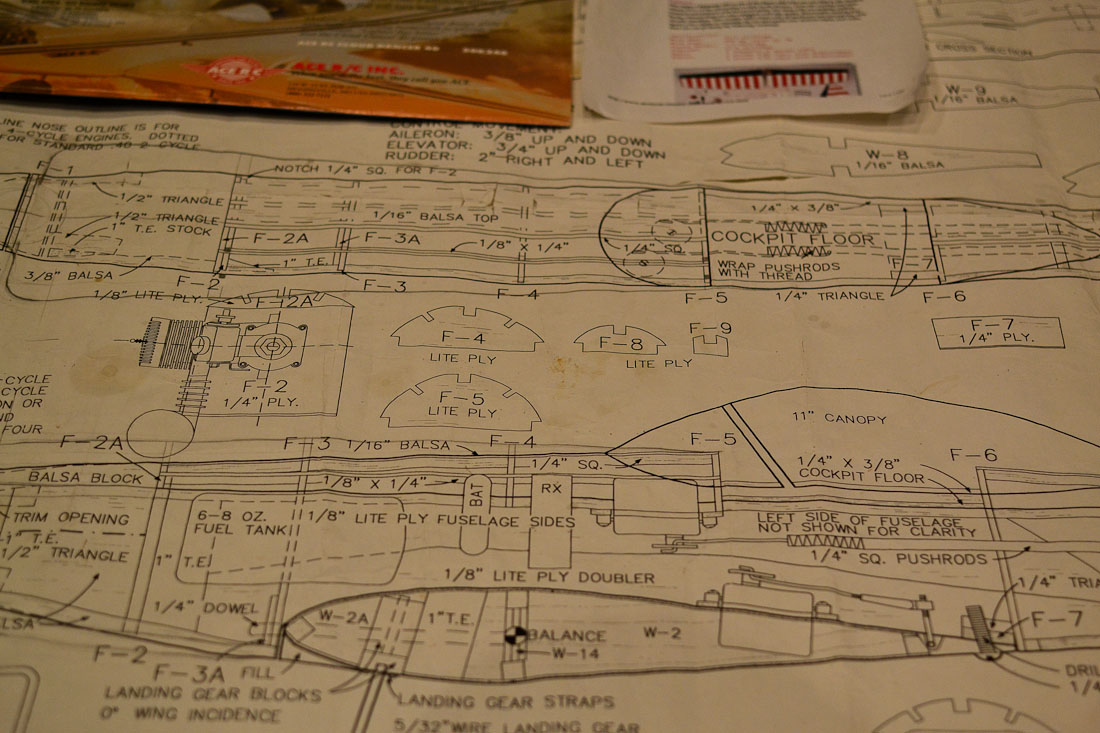 ACE R/C
ACE R/C INC.
CROSS SECTION
W-9
1/16" BALSA
LINE NOSE OUTLINE IS FOR
4-CYCLE ENGINES. DOTTED
FOR STANDARD .40 2-CYCLE
CONTROL MOVEMENT:
AILERON: 3/8" UP AND DOWN
ELEVATOR: 3/4" UP AND DOWN
RUDDER: 2" RIGHT AND LEFT
W-8
1/16" BALSA
F-1
NOTCH 1/4" SQ. FOR F-2
1/2" TRIANGLE
1/2" TRIANGLE
1" T.E. STOCK
1/16" BALSA TOP
1/4" X 3/8"
F-2A
F-3A
1/8" X 1/4"
1/4" SQ.
COCKPIT FLOOR
1" T.E.
WRAP PUSHRODS
WITH THREAD
F-7
3/8" BALSA
F-2
F-3
F-4
F-5
1/4" TRIANGLE
F-6
1/8" LITE PLY.
F-2A
F-4
LITE PLY
F-8
LITE PLY
F-9
F-7
1/4" PLY.
F-2
1/4" PLY.
F-5
LITE PLY
-CYCLE
CYCLE
ON OR
ND
FOUR
11" CANOPY
F-2A
F-3
1/16" BALSA
F-4
F-5
F-6
BALSA BLOCK
1/8" X 1/4"
1/4" SQ.
1/4" X 3/8"
COCKPIT FLOOR
BAT
RX
TRIM OPENING
6-8 OZ.
FUEL TANK
1/8" LITE PLY FUSELAGE SIDES
LEFT SIDE OF FUSELAGE
NOT SHOWN FOR CLARITY
1" T.E.
1/2" TRIANGLE
1" T.E.
1/4" SQ. PUSHRODS
1/8" LITE PLY DOUBLER
1/4" TRIA
1/4" DOWEL
W-2A
1" T.E.
BALANCE
W-2
F-7
W-14
LSA
F-2
F-3A
FILL
DRIL
1/4
LANDING GEAR BLOCKS
0° WING INCIDENCE
LANDING GEAR STRAPS
5/32" WIRE LANDING GEAR